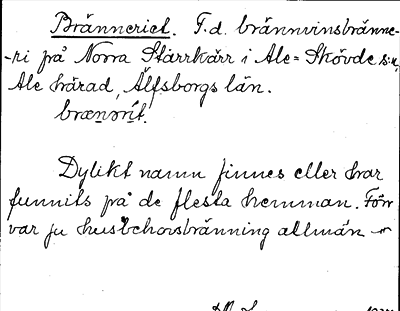 Bränneriet. F.d. brännvinsbränne-
-ri på Norra Starrkärr i Ale-Skövde s:n,
Ale härad, Älfsborgs län.
Dylikt namn finnes eller har
funnits på de flesta hemman. Förr
var ju husbehovsbränning allmän